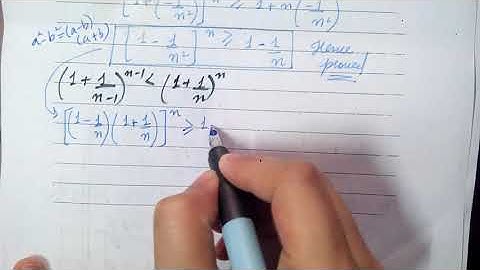 [1 + 1/n²]ⁿ ≥ 1 + n(-1/n²)
a²-b²=(a-b)(a+b) [1 - 1/n²]ⁿ ≥ 1 - 1/n Hence proved
(1 + 1/(n-1))ⁿ⁻¹ < (1 + 1/n)ⁿ
[(1 - 1/n)(1 + 1/n)]ⁿ ≥ 1